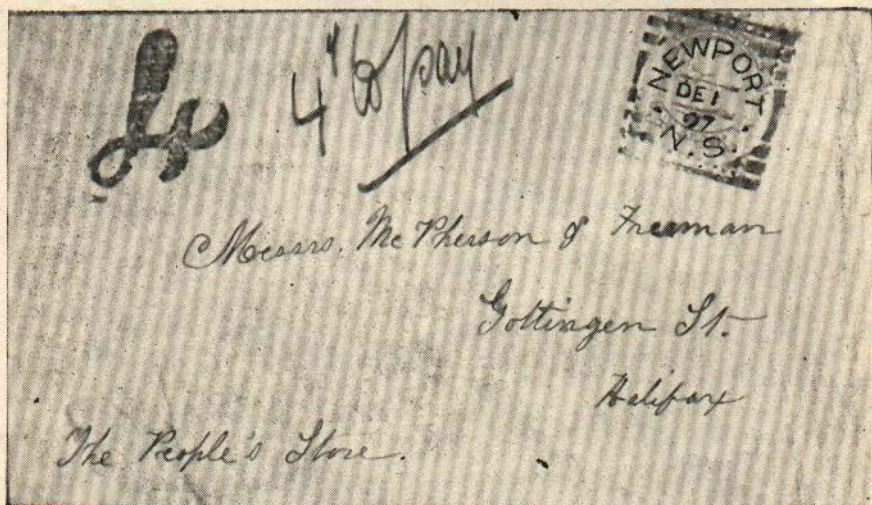 4
4 to pay
NEWPORT
DE 1
97
N.S.
Messrs. McPherson & Freeman
Gottingen St.
Halifax
The People's Store.